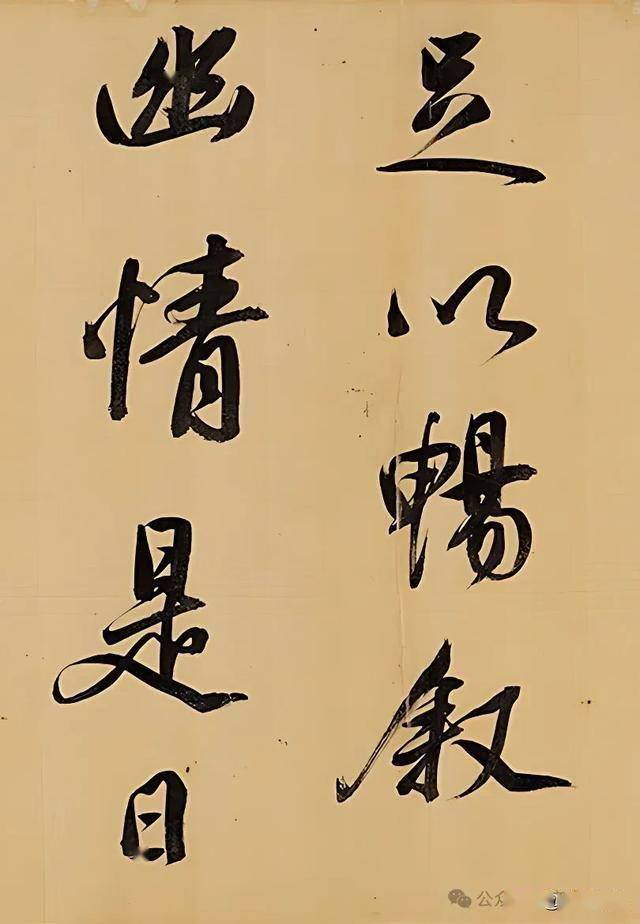 足以暢叙
幽情是日
公众